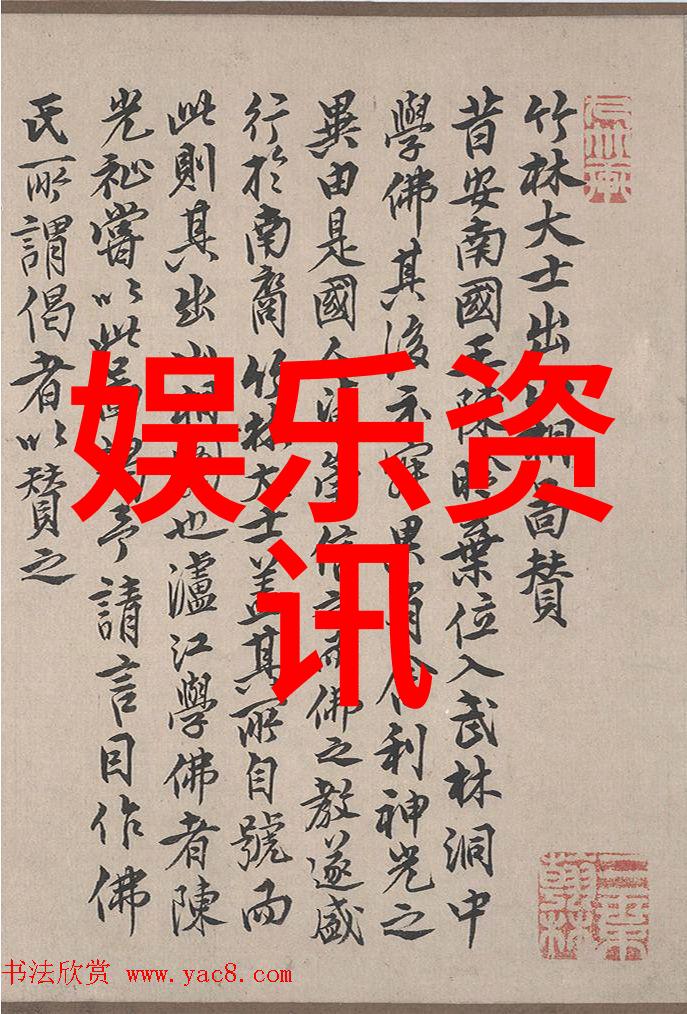 竹林大士出相啚贊
昔安南國王陳棄位入武林洞中
學佛其後示舍利神光之
異由是國人佛之教遂盛
行於南裔竹林大士蓋其所自號而
此則其出山相也瀘江學佛者陳
光祉嘗以此予請言因作佛
氏所謂偈者以贊之
娱乐资
讯
书法欣赏 www.yac8.com